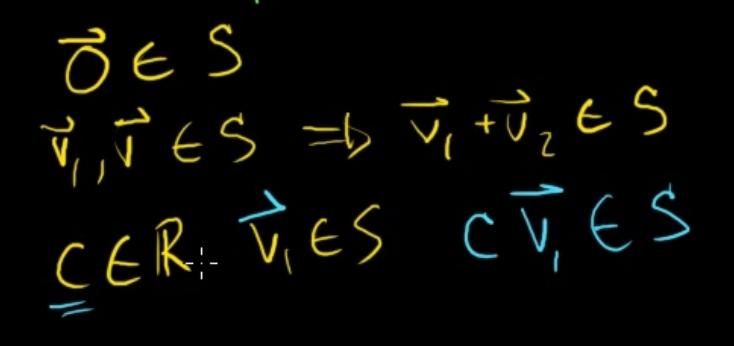 \vec{0} ∈ S
\vec{v}_1, \vec{v} ∈ S ⇒ \vec{v}_1 + \vec{v}_2 ∈ S
C ∈ ℝ \vec{v}_1 ∈ S C\vec{v}_1 ∈ S